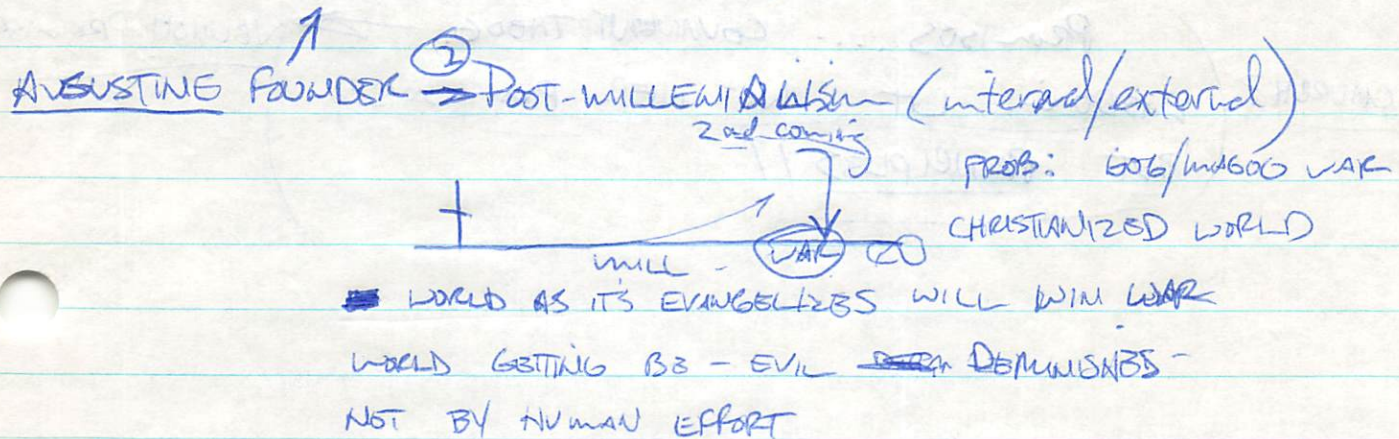 ②
AUGUSTINE FOUNDER → POST-MILLENIALISM (internal/external)
2nd coming
PROB: GOG/MAGOG WAR
CHRISTIANIZED WORLD
MILL - WAR ∞
WORLD AS IT'S EVANGELIZES WILL WIN WAR
WORLD GETTING - EVIL DEMINISHES -
NOT BY HUMAN EFFORT